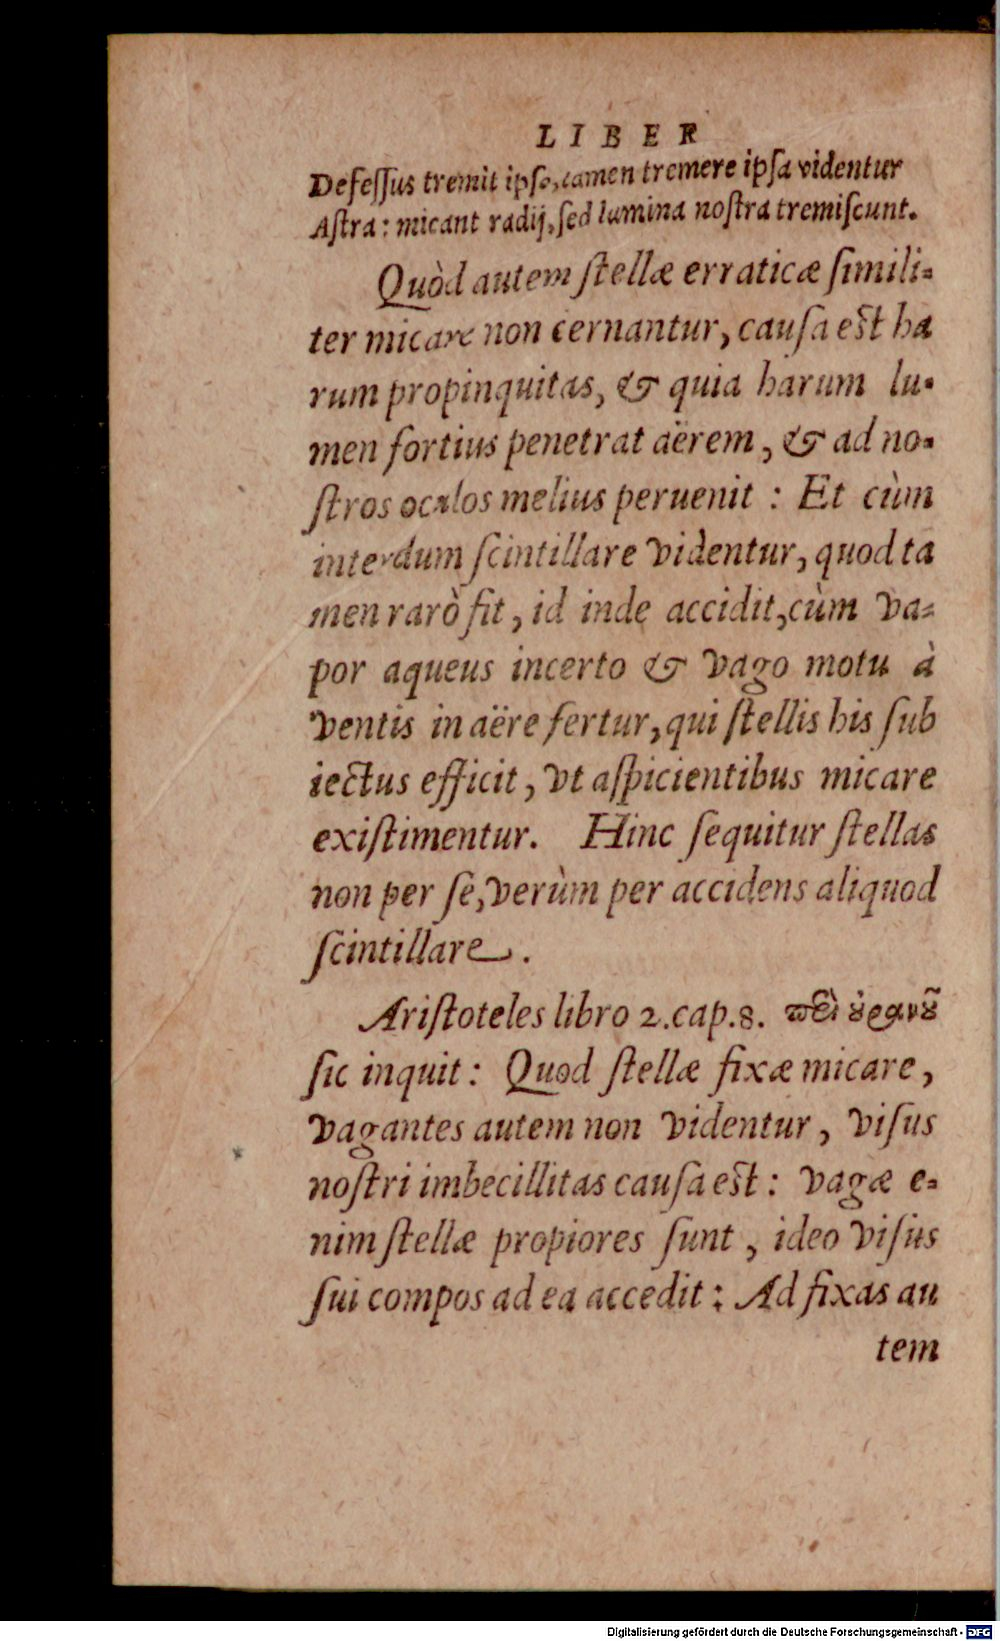 LIBER
Defeſſus tremit ipſe, tamen tremere ipſa videntur
Aſtra: micant radij, ſed lumina noſtra tremiſcunt.
Quòd autem ſtellæ erraticæ ſimili-
ter micare non cernantur, cauſa eſt ha
rum propinquitas, & quia harum lu-
men fortius penetrat aërem, & ad no-
ſtros oculos melius peruenit : Et cùm
interdum ſcintillare videntur, quod ta
men rarò fit, id inde accidit, cùm va-
por aqueus incerto & vago motu à
ventis in aëre fertur, qui ſtellis his ſub
iectus efficit, vt aſpicientibus micare
exiſtimentur. Hinc ſequitur ſtellas
non per ſe, verùm per accidens aliquod
ſcintillare.
Ariſtoteles libro 2. cap. 8. περὶ οὐρανοῦ
ſic inquit: Quod ſtellæ fixæ micare,
vagantes autem non videntur, viſus
noſtri imbecillitas cauſa eſt: vagæ e-
nim ſtellæ propiores ſunt, ideo viſus
ſui compos ad ea accedit: Ad fixas au
tem
Digitalisierung gefördert durch die Deutsche Forschungsgemeinschaft - DFG